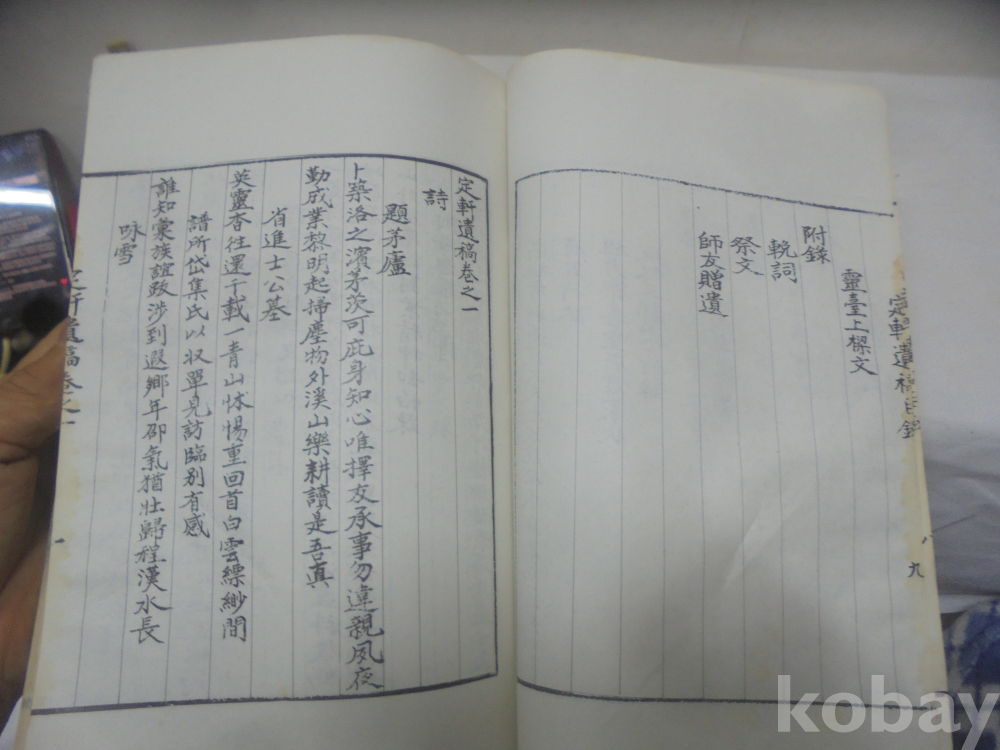 定軒遺稿目錄
九
靈臺上樑文
附錄
輓詞
祭文
師友贈遺
定軒遺稿卷之一
詩
題茅廬
卜築洛之濱茅茨可庇身知心唯擇友承事勿違親夙夜
勤成業黎明起掃塵物外溪山樂耕讀是吾真
省進士公墓
英靈杳往還千載一青山怵惕重回首白雲縹緲間
譜所岱集氏以収單見訪臨别有感
誰知彙族誼跋涉到遐鄉年卲氣猶壯歸程漢水長
咏雪
定軒遺稿卷之一
一
kobay